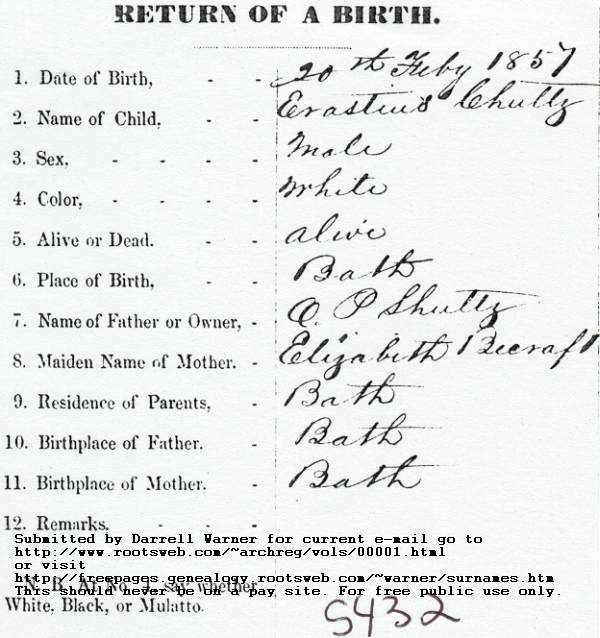 RETURN OF A BIRTH.
1. Date of Birth, - - 20th Feby 1857
2. Name of Child, - - Erastius Chultz
3. Sex, - - - - Male
4. Color, - - - - White
5. Alive or Dead. - - alive
6. Place of Birth, - - Bath
7. Name of Father or Owner, - O. P Shultz
8. Maiden Name of Mother. - Elizabeth Becraft
9. Residence of Parents, - Bath
10. Birthplace of Father. - Bath
11. Birthplace of Mother. - Bath
12. Remarks. - - -
Submitted by Darrell Warner for current e-mail go to
http://www.rootsweb.com/~archreg/vols/00001.html
or visit
http://freepages.genealogy.rootsweb.com/~warner/surnames.htm
N. B. At No. 4, say whether
This should never be on a pay site. For free public use only.
White, Black, or Mulatto.
5432